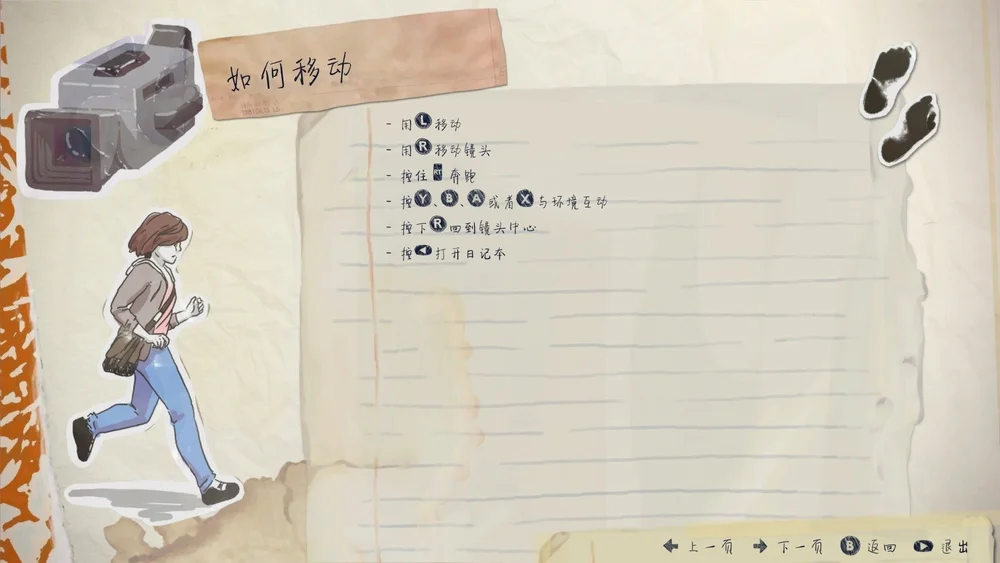 如何移动
- 用L移动
- 用R移动镜头
- 按住RT奔跑
- 按Y、B、A或者X与环境互动
- 按下R回到镜头中心
- 按◀打开日记本
← 上一页 → 下一页 B 返回 ▶ 退出